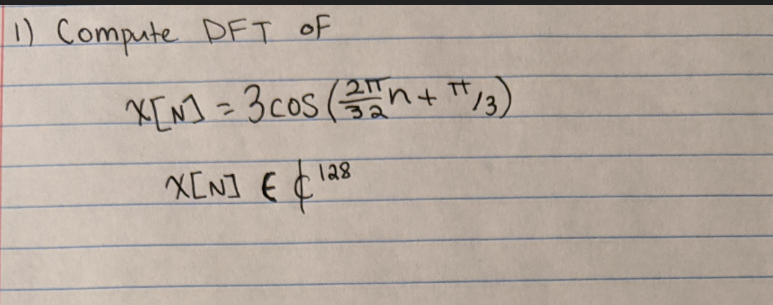 1) Compute DFT of
x[N] = 3cos(2π/32 n + π/3)
x[N] ∈ ℂ^128